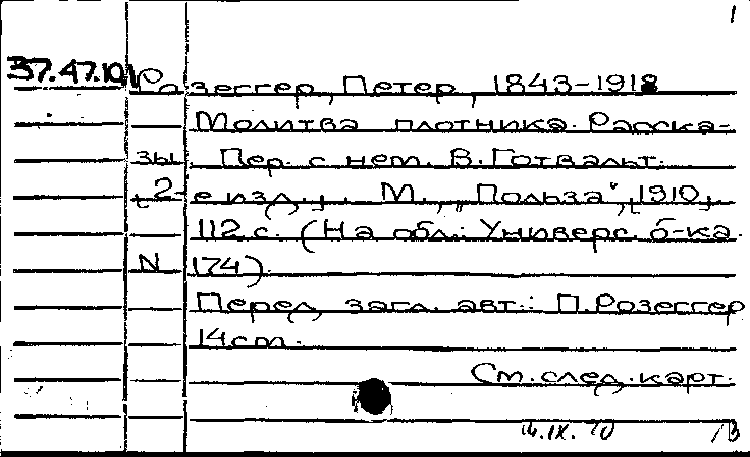 1
37.47.10
Розеггер, Петер, 1843-1918
Молитва плотника. Расска-
зы. Пер. с нем. В. Готвальт.
[2-е изд.]. М., „Польза", [1910].
112 с. (На обл.: Универс. б-ка.
N 174).
Перед загл. авт.: П. Розеггер
14 см.
См. след. карт.
IX. 70